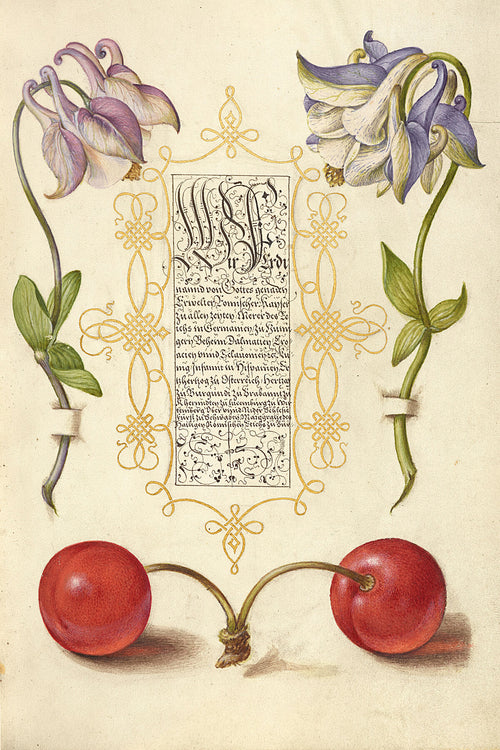 Wir Ferdi
nannd von Gottes genaden
Erwellter Römischer Kayser
zu allen zeyten Merer des Re
ichs in Germanien, zu Hunn
gern Behem Dalmatien Cro
acien vnnd Sclauonien &c. Ku
nig Infannt in Hispanien, Er
tzhertzog zu Osterreich Hertzog
zu Burgundt zu Brabannt zu
zu Lucemburg zu Wir
temberg Ober vnnd Nider Schlesien
Fürst zu Schwaben Marggraf des
Hailigen Römischen Reichs zu Bur